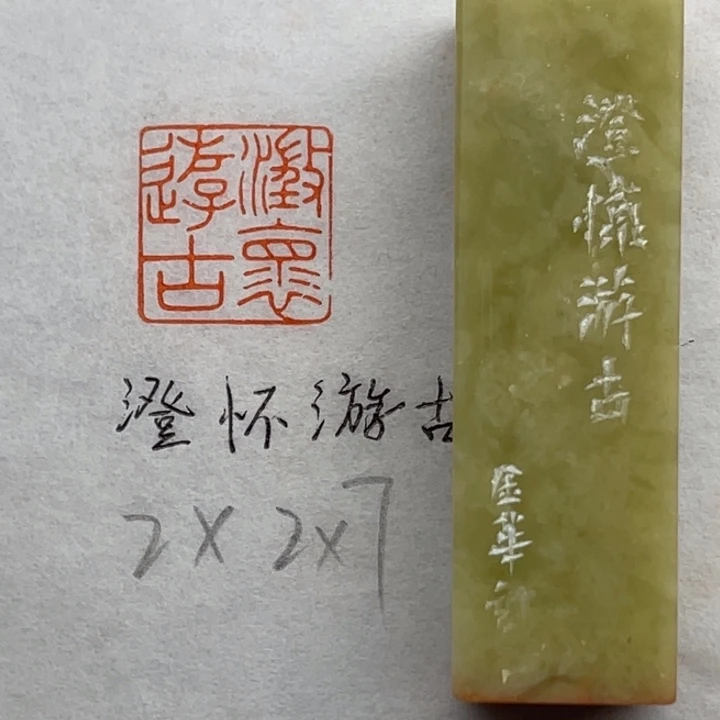 澂褱
遊古
澄怀游古
2×2×7
澄懷游古
金華